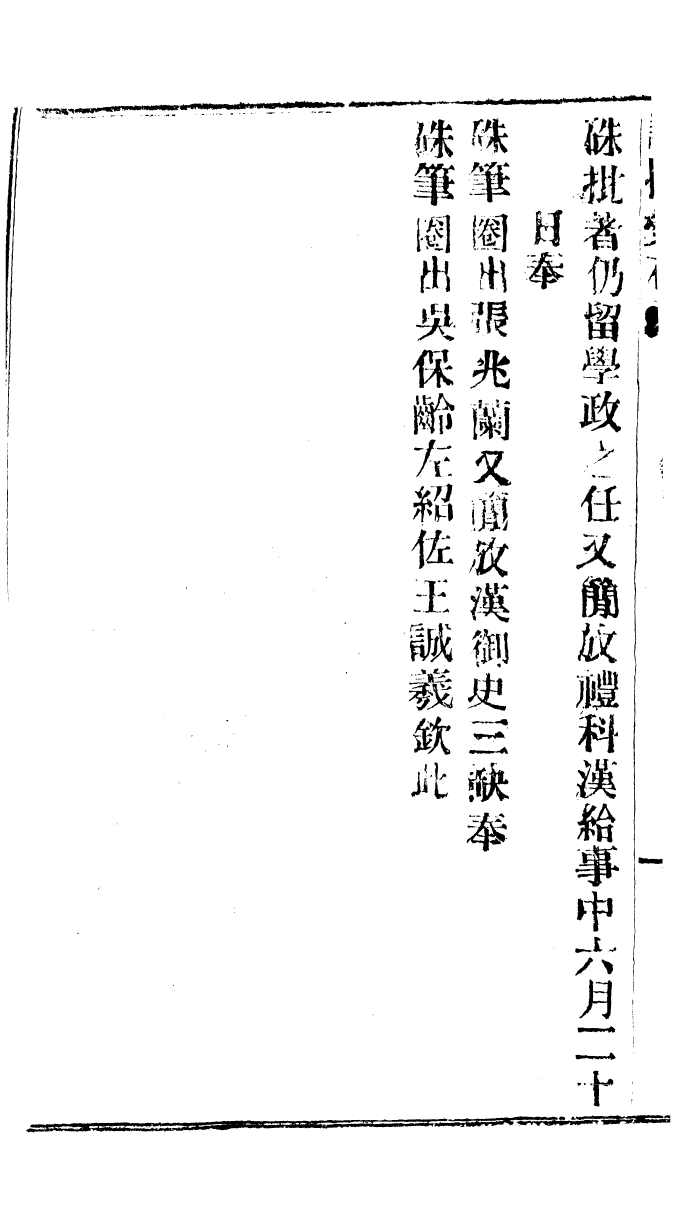 硃批著仍留學政之任又簡放禮科漢給事中六月二十
日奉
硃筆圈出張兆蘭又簡放漢御史三缺奉
硃筆圈出吳保齡左紹佐王誠羲欽此
一